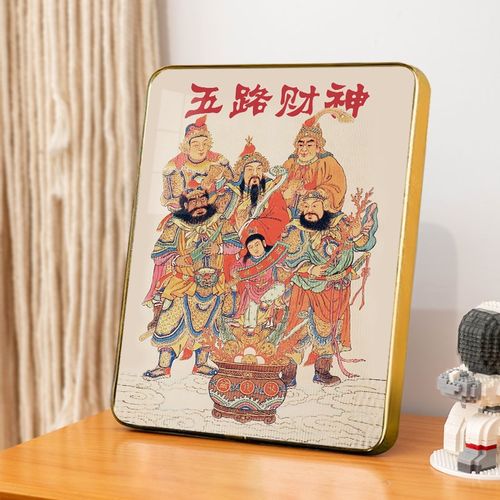 五路财神